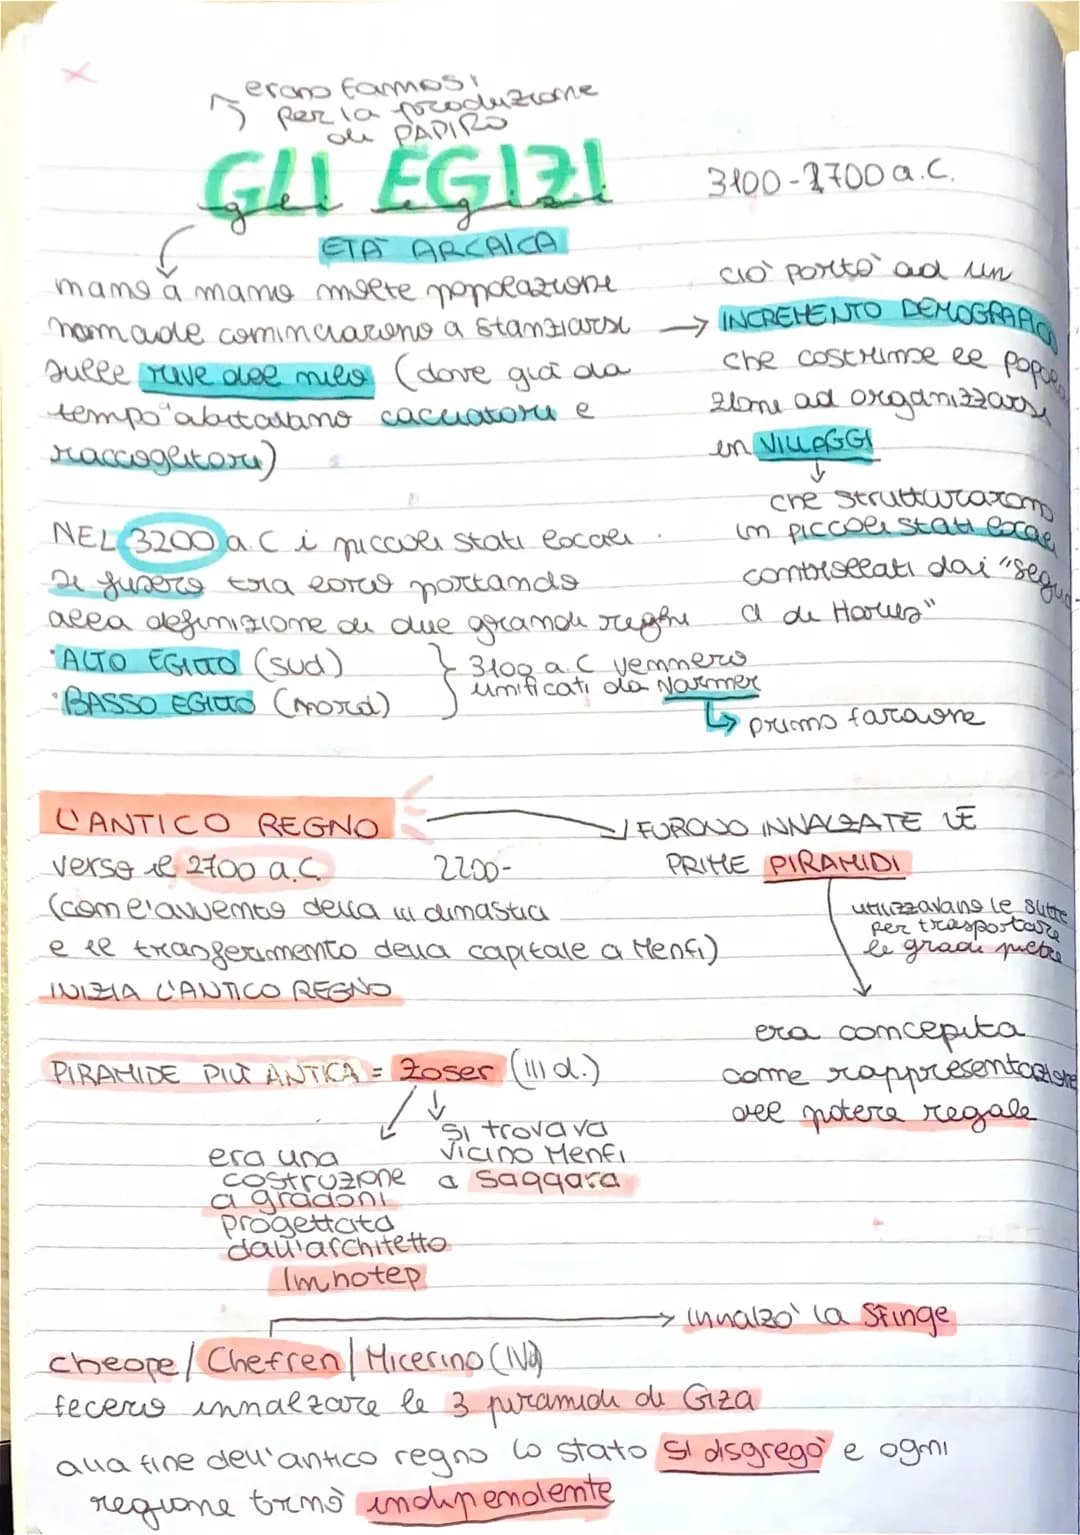 erano famosi
per la produzione
di PAPIRO
GLI EGIZI
gli egizi
3100-2700 a.C.
ETÀ ARCAICA
mano a mano molte popolazione
nomade cominciarono a stanziarsi
sulle rive del nilo (dove già da
tempo abitavano cacciatori e
raccoglitori)
ciò portò ad un
INCREMENTO DEMOGRAFICO
che costrinse le popola
zione ad organizzarsi
in VILLAGGI
che strutturarono
in piccoli stati locali
controllati dai "segua
ci di Horus"
NEL 3200 a.C i piccoli stati locali
si fusero tra loro portando
alla definizione di due grandi regni
·ALTO EGITTO (sud)
·BASSO EGITTO (nord)
3100 a.C vennero
unificati da Narmer
primo faraone
L'ANTICO REGNO
verso il 2700 a.C.
2200-
(com l'avvento della III dinastia
e il trasferimento della capitale a Menfi)
INIZIA L'ANTICO REGNO
FURONO INNALZATE LE
PRIME PIRAMIDI
utilizzavano le slitte
per trasportare
le gradi pietre
era concepita
come rappresentazione
del potere regale
PIRAMIDE PIÙ ANTICA = Zoser (III d.)
era una
costruzione
a gradoni
progettata
dall'architetto
Imhotep
si trovava
vicino Menfi
a Saqqara
innalzò la Sfinge
cheope/Chefren/Micerino (IVd)
fecero innalzare le 3 piramidi di Giza
alla fine dell'antico regno lo stato si disgregò e ogni
regione tornò indipendente